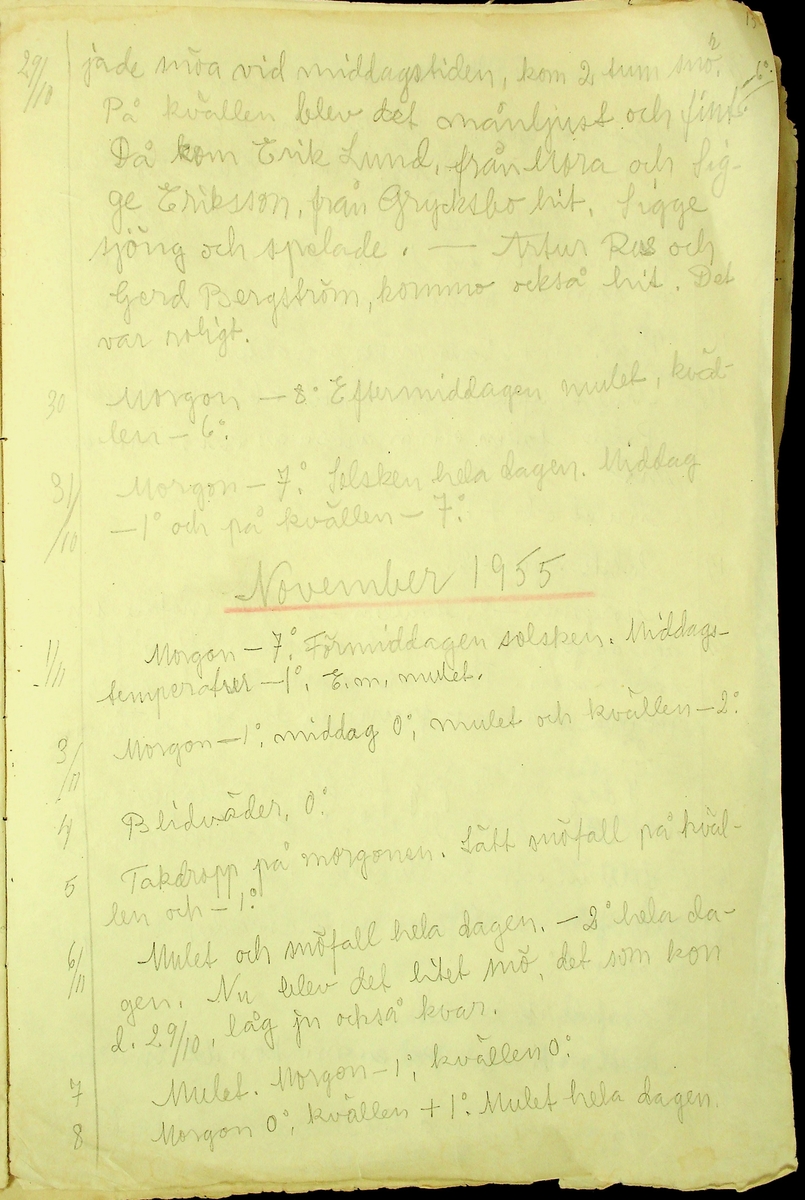 29/10 jade snöa vid middagstiden, kom 2 tum snö.
På kvällen blev det månljust och fint.
Då kom Erik Lund, från Mora och Sig-
ge Eriksson, från Grycksbo hit. Sigge
sjöng och spelade. — Artur Rus och
Gerd Bergström, kommo också hit. Det
var roligt.
30 Morgon —8° Eftermiddagen mulet, kväl-
len — 6°.
31/10 Morgon — 7°. Solsken hela dagen. Middag
—1° och på kvällen — 7°.
November 1955
1/11 Morgon — 7°. Förmiddagen solsken. Middags-
temperatrer —1°. E.m. mulet.
3/11 Morgon —1°, middag 0°, mulet och kvällen —2°.
4 Blidväder, 0°.
5 Takdropp på morgonen. Lätt snöfall på kväl-
len och —1°.
6/11 Mulet och snöfall hela dagen. —2° hela da-
gen. Nu blev det litet snö, det som kon
d. 29/10, låg ju också kvar.
7 Mulet. Morgon —1°, kvällen 0°.
8 Morgon 0°, kvällen +1°. Mulet hela dagen.